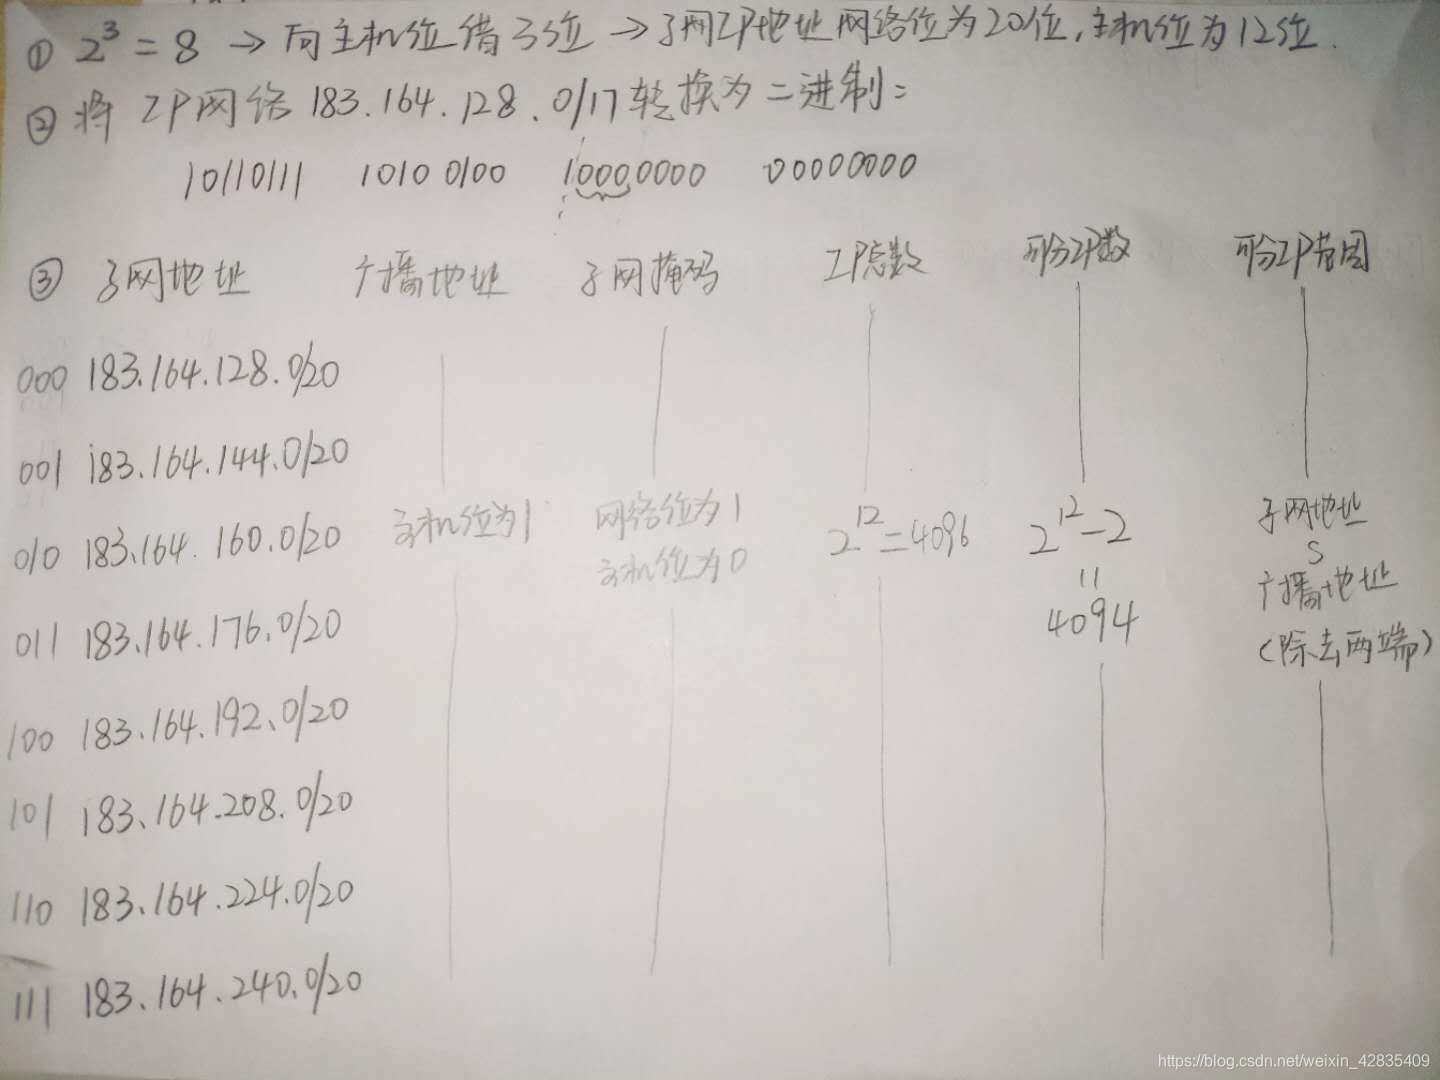 ① 2³ = 8 → 向主机位借3位 → 子网IP地址网络位为20位,主机位为12位.
② 将 IP网络 183.164.128.0/17 转换为二进制:
10110111 1010 0100 10000000 00000000
③ 子网地址 广播地址 子网掩码 IP总数 可分IP数 可分IP范围
000 183.164.128.0/20
001 183.164.144.0/20
010 183.164.160.0/20 主机位为1 网络位为1 2¹²=4096 2¹²-2 子网地址
主机位为0 = S 广播地址
011 183.164.176.0/20 4094 (除去两端)
100 183.164.192.0/20
101 183.164.208.0/20
110 183.164.224.0/20
111 183.164.240.0/20
https://blog.csdn.net/weixin_42835409